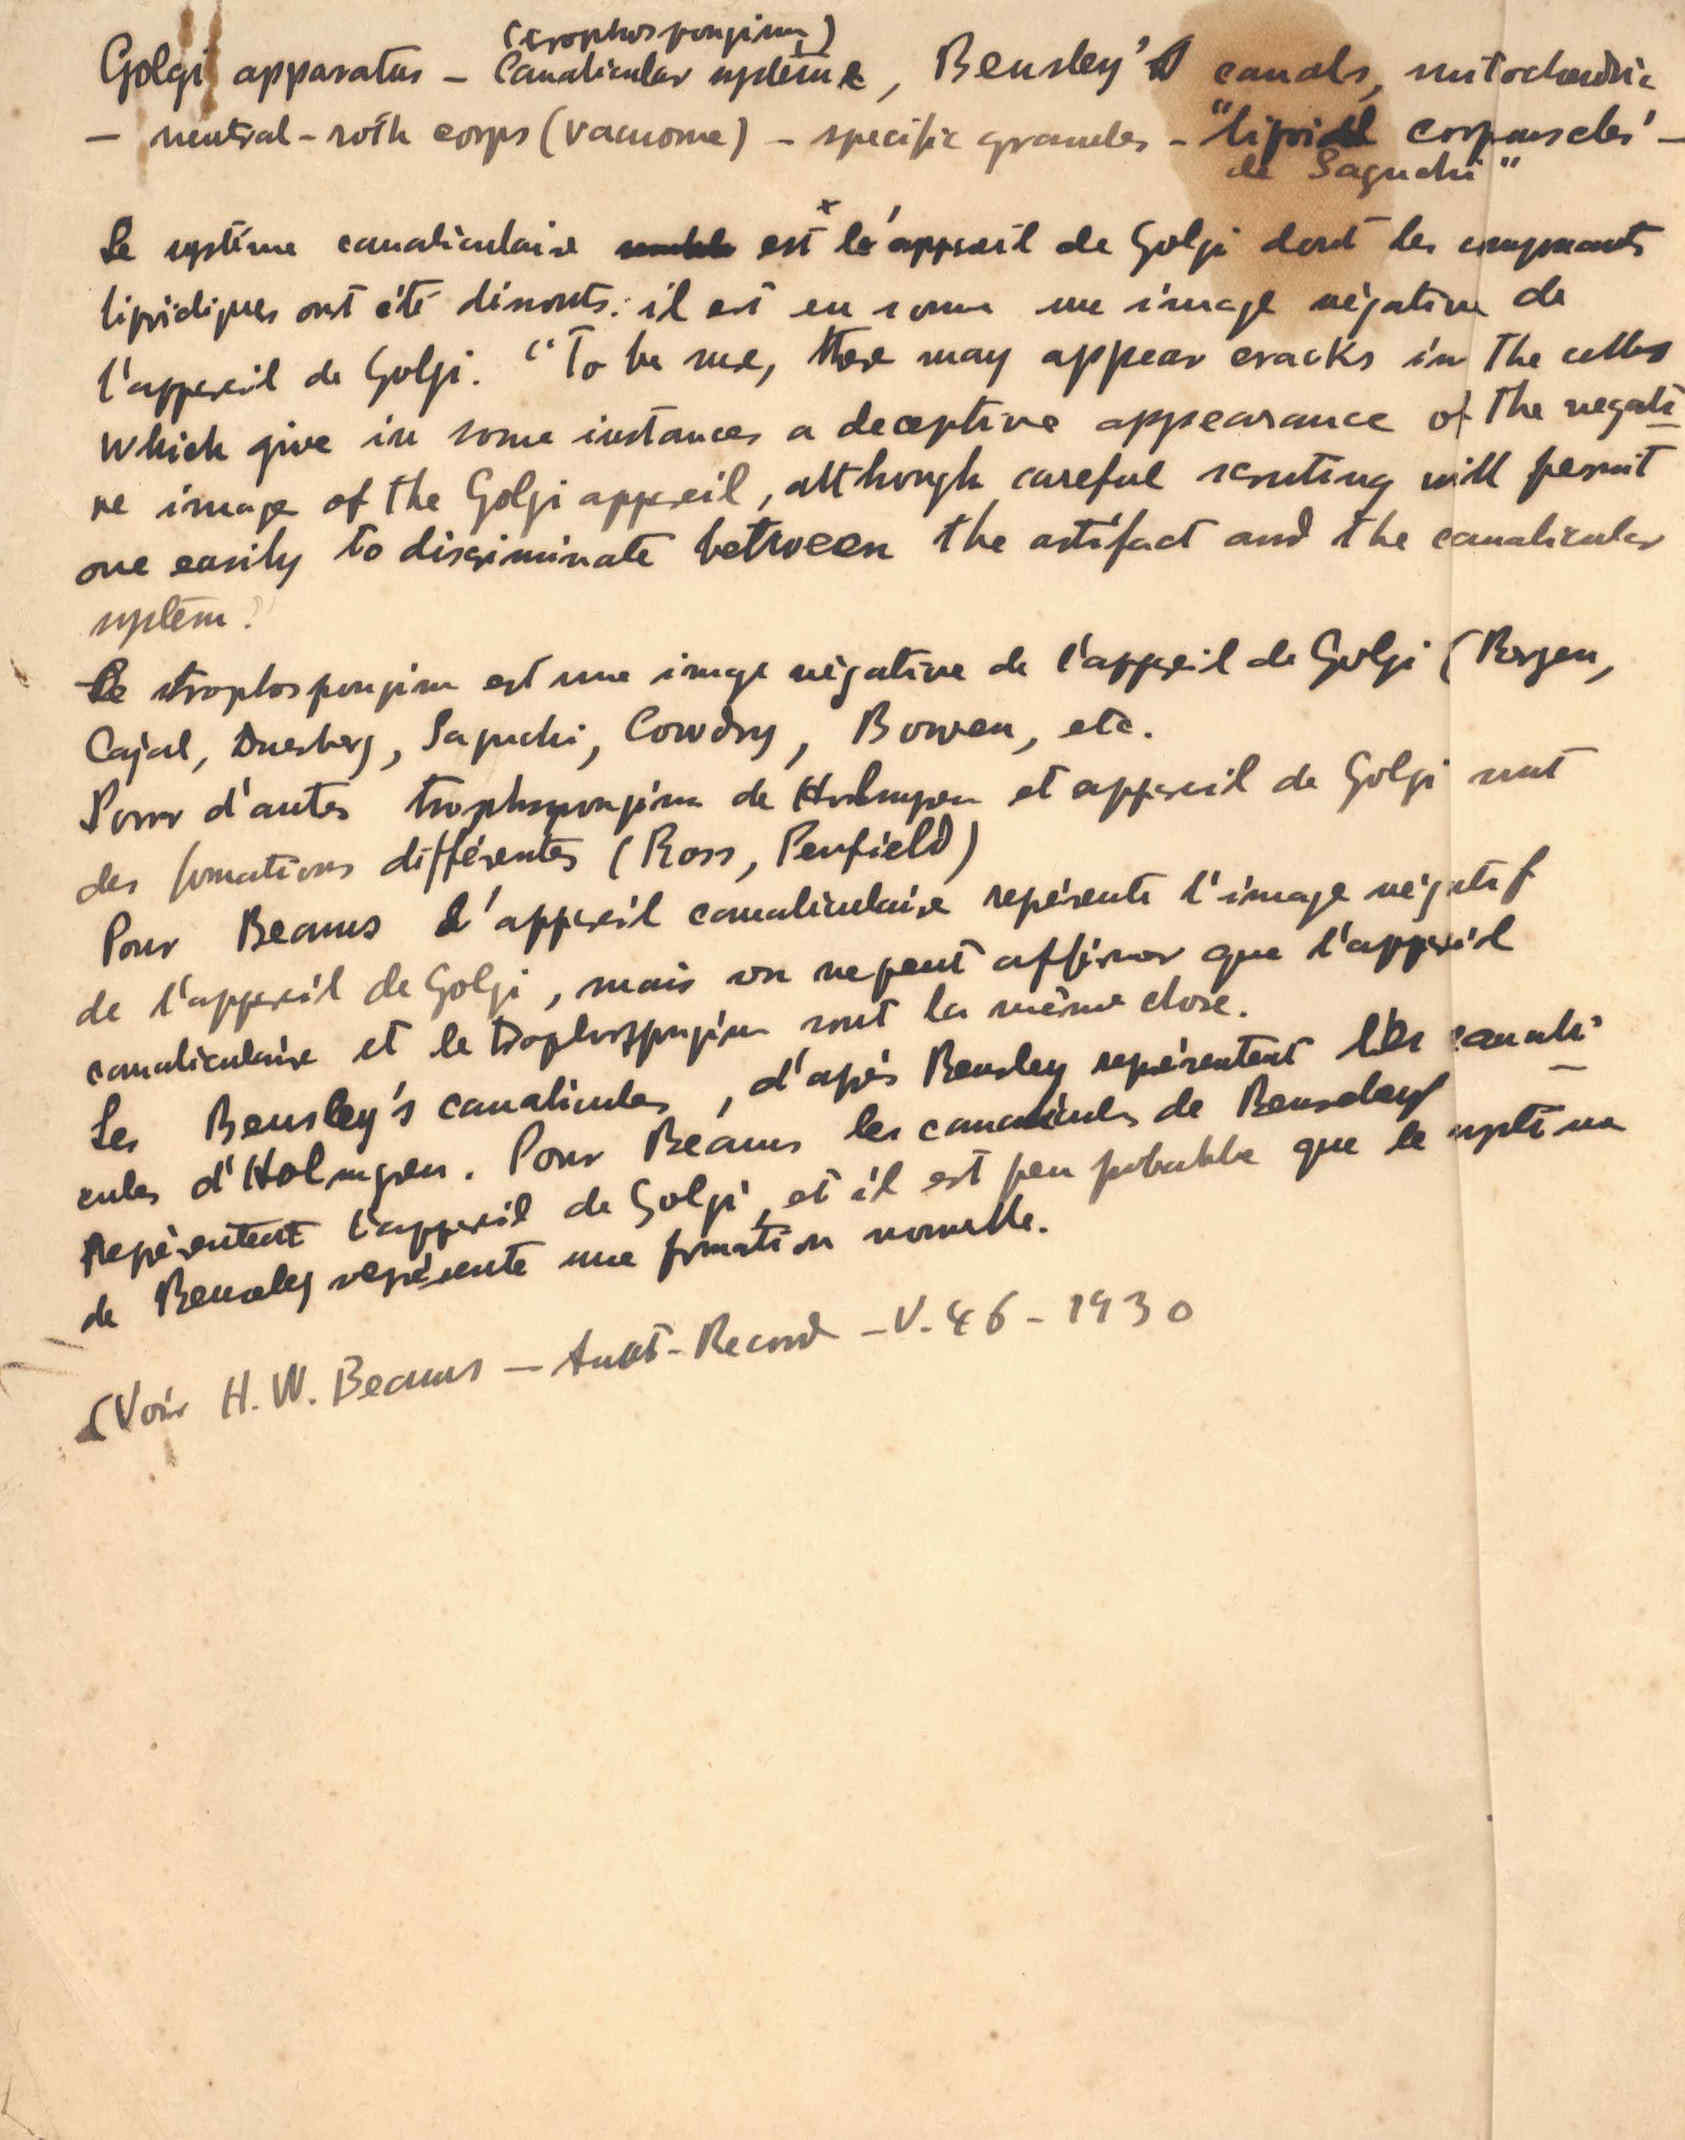 (trophospongium)
Golgi apparatus – Canalicular système, Bensley's canals, mitochondria
– neutral-roth corps (vacuome) – specific granules – "lipoid corpuscles" –
de Saguchi"
Le système canaliculaire est l'appareil de Golgi dont les composants
lipidiques ont été dissouts: il est en somme une image négative de
l'appareil de Golgi. "To be sure, there may appear cracks in the cells
which give in some instances a deceptive appearance of the negati
ve image of the Golgi appareil, although careful scrutiny will permit
one easily to discriminate between the artifact and the canalicular
system."
Le trophospongium est une image négative de l'appareil de Golgi (Bergen,
Cajal, Duesberg, Saguchi, Cowdry, Bowen, etc.
Pour d'autes trophospongium de Holmgren et appareil de Golgi sont
des formations différentes (Ross, Penfield)
Pour Beams l'appareil canaliculaire représente l'image négatif
de l'appareil de Golgi, mais on ne peut affirmer que l'appareil
canaliculaire et le trophospongium sont la même chose.
Les Bensley's canalicules, d'après Bensley représentent les canali-
cules d'Holmgren. Pour Beams les canalicules de Bensley
représentent l'appareil de Golgi, et il est peu probable que le système
de Bensley représente une formation nouvelle.
(Voir H. W. Beams – Anat-Record – V. 46 – 1930